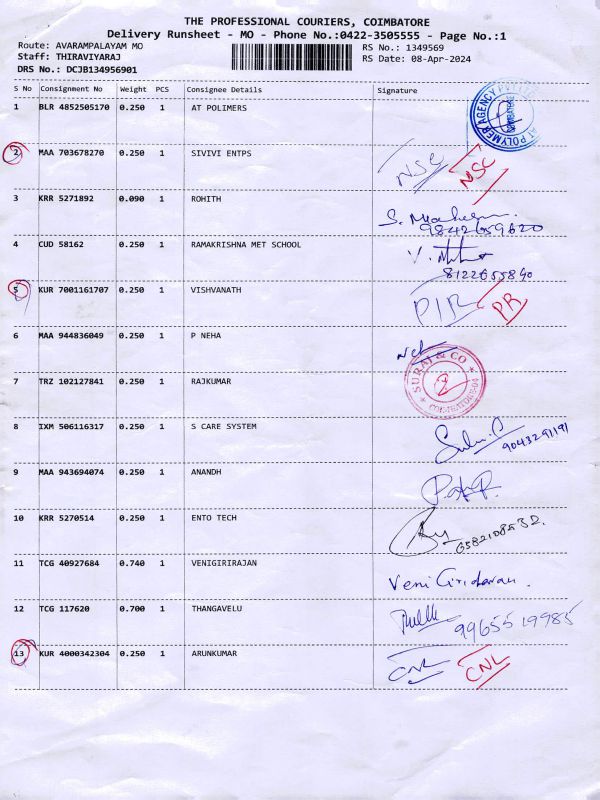 THE PROFESSIONAL COURIERS, COIMBATORE
Delivery Runsheet - MO - Phone No.:0422-3505555 - Page No.:1
Route: AVARAMPALAYAM MO RS No.: 1349569
Staff: THIRAVIYARAJ RS Date: 08-Apr-2024
DRS No.: DCJB134956901
S No Consignment No Weight PCS Consignee Details Signature
1 BLR 4852505170 0.250 1 AT POLIMERS
AT POLYMER AGENCY PVT LTD
COIMBATORE
2 MAA 703678270 0.250 1 SIVIVI ENTPS NSC NSC
3 KRR 5271892 0.090 1 ROHITH
9842659620
4 CUD 58162 0.250 1 RAMAKRISHNA MET SCHOOL
8122655890
5 KUR 7001161707 0.250 1 VISHVANATH P/R PR
6 MAA 944836049 0.250 1 P NEHA
7 TRZ 102127841 0.250 1 RAJKUMAR
SURAJ & CO
COIMBATORE-04
8 IXM 506116317 0.250 1 S CARE SYSTEM
9043291191
9 MAA 943694074 0.250 1 ANANDH
10 KRR 5270514 0.250 1 ENTO TECH
11 TCG 40927684 0.740 1 VENIGIRIRAJAN
Veni
12 TCG 117620 0.700 1 THANGAVELU
99655 19985
13 KUR 4000342304 0.250 1 ARUNKUMAR CNL CNL